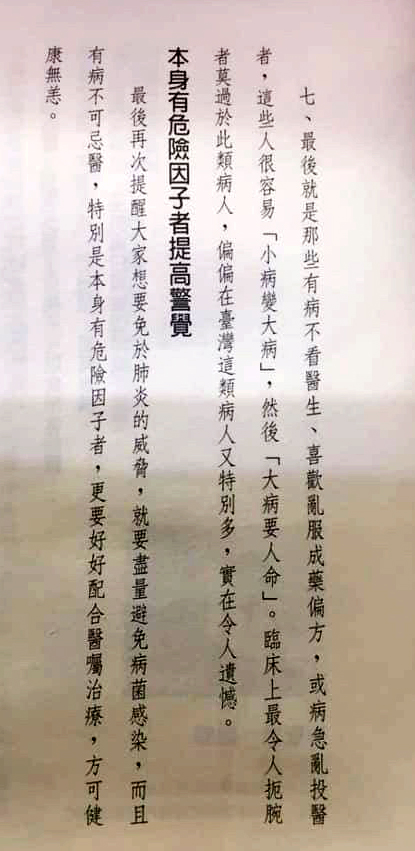 七、最後就是那些有病不看醫生、喜歡亂服成藥偏方，或病急亂投醫
者，這些人很容易「小病變大病」，然後「大病要人命」。臨床上最令人扼腕
者莫過於此類病人，偏偏在臺灣這類病人又特別多，實在令人遺憾。
本身有危險因子者提高警覺
最後再次提醒大家想要免於肺炎的威脅，就要盡量避免病菌感染，而且
有病不可忌醫，特別是本身有危險因子者，更要好好配合醫囑治療，方可健
康無恙。